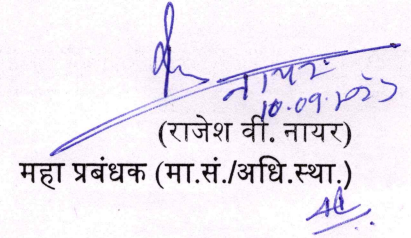 नायर
10.09.2023
(राजेश वी. नायर)
महा प्रबंधक (मा.सं./अधि.स्था.)